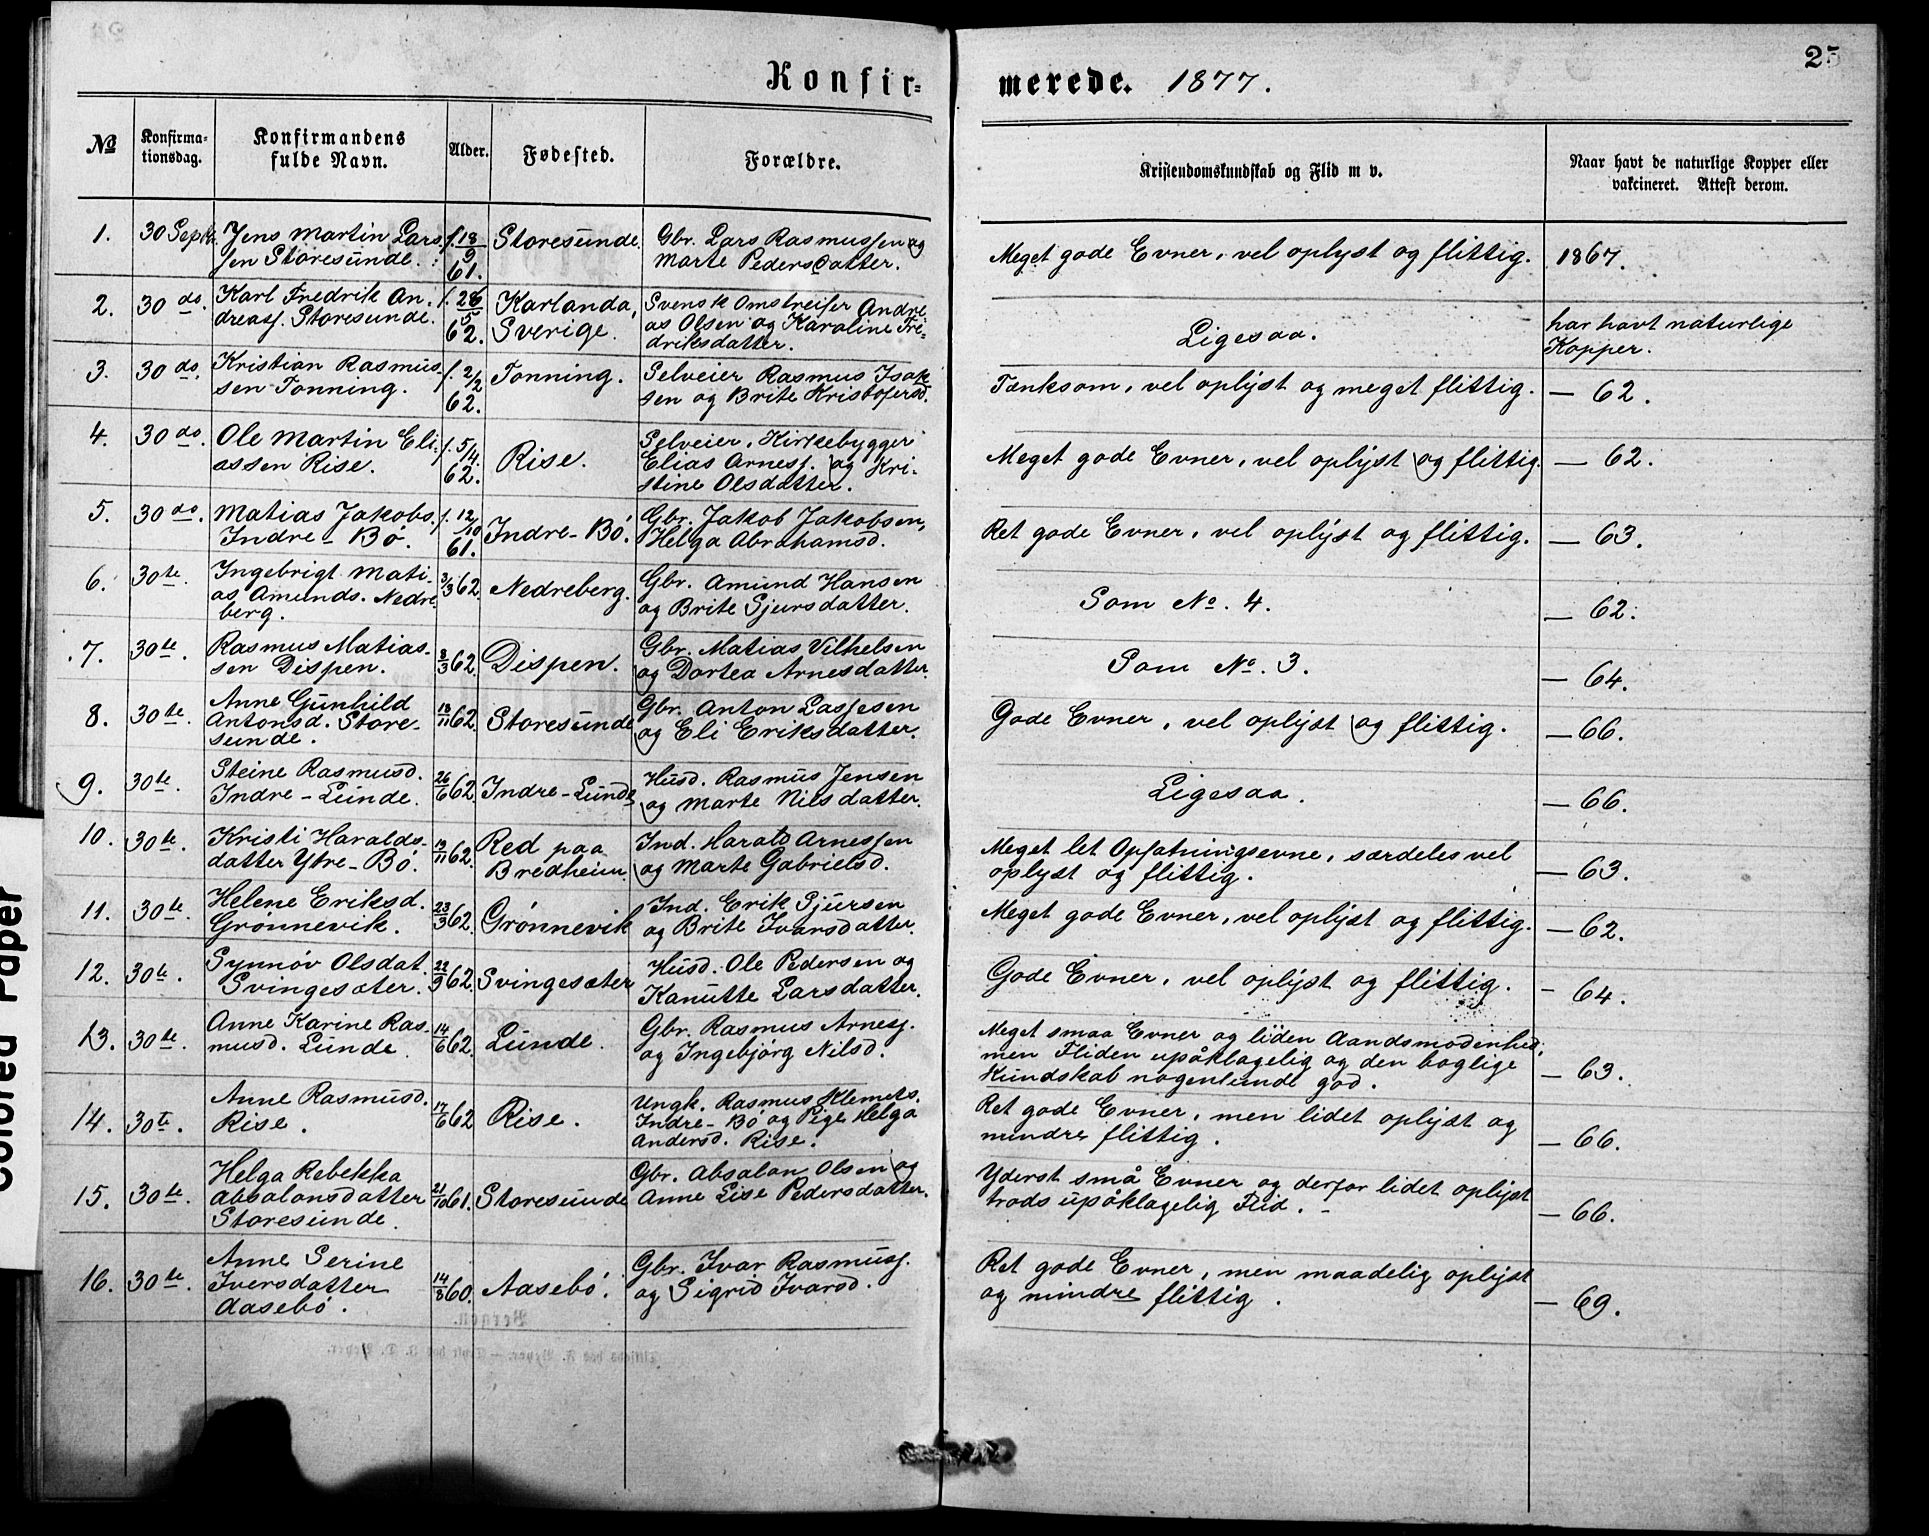 Konfir=
merede. 1877.
25
№
Konfirma-
tionsdag.
Konfirmandens
fulde Navn.
Alder.
Fødested.
Forældre.
Kristendomskundskab og Flid m v.
Naar havt de naturlige Kopper eller
vakcineret. Attest derom.
1. 30 Septb. Jens Martin Lars f. 18/9 Storesunde. Gbr. Lars Rasmussen og Meget gode Evner, vel oplyst og flittig. 1867.
sen Storesunde. 61. Marte Pedersdatter.
2. 30 do. Karl Fredrik An- f. 26/5 Karlanda, Svensk Omstreifer Andre
dreass. Storesunde. 62. Sverige. as Olsen og Karoline Fre- Ligesaa. har havt naturlige
driksdatter. Kopper.
3. 30 do. Kristian Rasmus- f. 2/2 Tonning. Selveier Rasmus Isak Tænksom, vel oplyst og meget flittig. — 62.
sen Tonning. 62. sen og Brite Kristofersd.
4. 30 do. Ole Martin Eli- f. 5/4. Rise. Selveier, Kirkebygger Meget gode Evner, vel oplyst og flittig. — 62.
assen Rise. 62. Elias Arness. og Kri-
stine Olsdatter.
5. 30 do. Matias Jakobs. f. 12/10 Indre-Bö. Gbr. Jakob Jakobsen, Ret gode Evner, vel oplyst og flittig. — 63.
Indre-Bö. 61. Helga Abrahamsd.
6. 30te. Ingebrigt Mati- 3/3 62. Nedreberg. Gbr. Amund Hansen Som No. 4. — 62.
as Amunds. Nedre og Brite Sjursdatter.
berg.
7. 30te. Rasmus Matias- 8/3 62. Dispen. Gbr. Matias Vilhelsen Som No. 3. — 64.
sen Dispen. og Dortea Arnesdatter.
8. 30te. Anne Gunhild 18/11 62. Storesunde Gbr. Anton Lassesen Gode Evner, vel oplyst og flittig. — 66.
Antonsd. Store- og Eli Eriksdatter.
sunde.
9. 30te. Steine Rasmusd. 26/6 62. Indre-Lunde Husd. Rasmus Jensen Ligesaa. — 66.
Indre-Lunde. og Marte Nilsdatter.
10. 30te. Kristi Haralds- 13/11 62. Red paa Ind. Harald Arnessen Meget let Opfatningsevne, særdeles vel
datter Ytre-Bö. Bredheim. og Marte Gabrielsd. oplyst og flittig. — 63.
11. 30te. Helene Eriksd. 23/3 62. Grönnevik Ind. Erik Sjursen Meget gode Evner, vel oplyst og flittig. — 62.
Grönnevik. og Brite Ivarsdatter.
12. 30te. Synnöv Olsdat. 22/3 62. Svingesæter Husd. Ole Pedersen og Gode Evner, vel oplyst og flittig. — 64.
Svingesæter. Kanutte Larsdatter.
13. 30te. Anne Karine Ras- 14/6 62. Lunde. Gbr. Rasmus Arness. Meget smaa Evner og liden Aandsmodenhed,
musd. Lunde. og Ingebjörg Nilsd. men Fliden upåklagelig og den boglige
Kundskab nogenlunde god. — 63.
14. 30te. Anne Rasmusd. 17/6 62 Rise. Ungk. Rasmus Klemets. Ret gode Evner, men lidet oplyst og
Rise. Indre-Bö og Pige Helga mindre flittig. — 66.
Andersd. Rise.
15. 30te. Helga Rebekka 21/10 61. Storesunde Gbr. Absalon Olsen og Yderst små Evner og derfor lidet oplyst
Absalonsdatter Anne Lise Pedersdatter. trods upåklagelig Flid. — 66.
Storesunde.
16. 30te. Anne Serine 14/8 60. Aasebö. Gbr. Ivar Rasmuss. Ret gode Evner, men maadelig oplyst
Iversdatter og Sigrid Ivarsd. og mindre flittig. — 69.
Aasebö.
Colored Paper